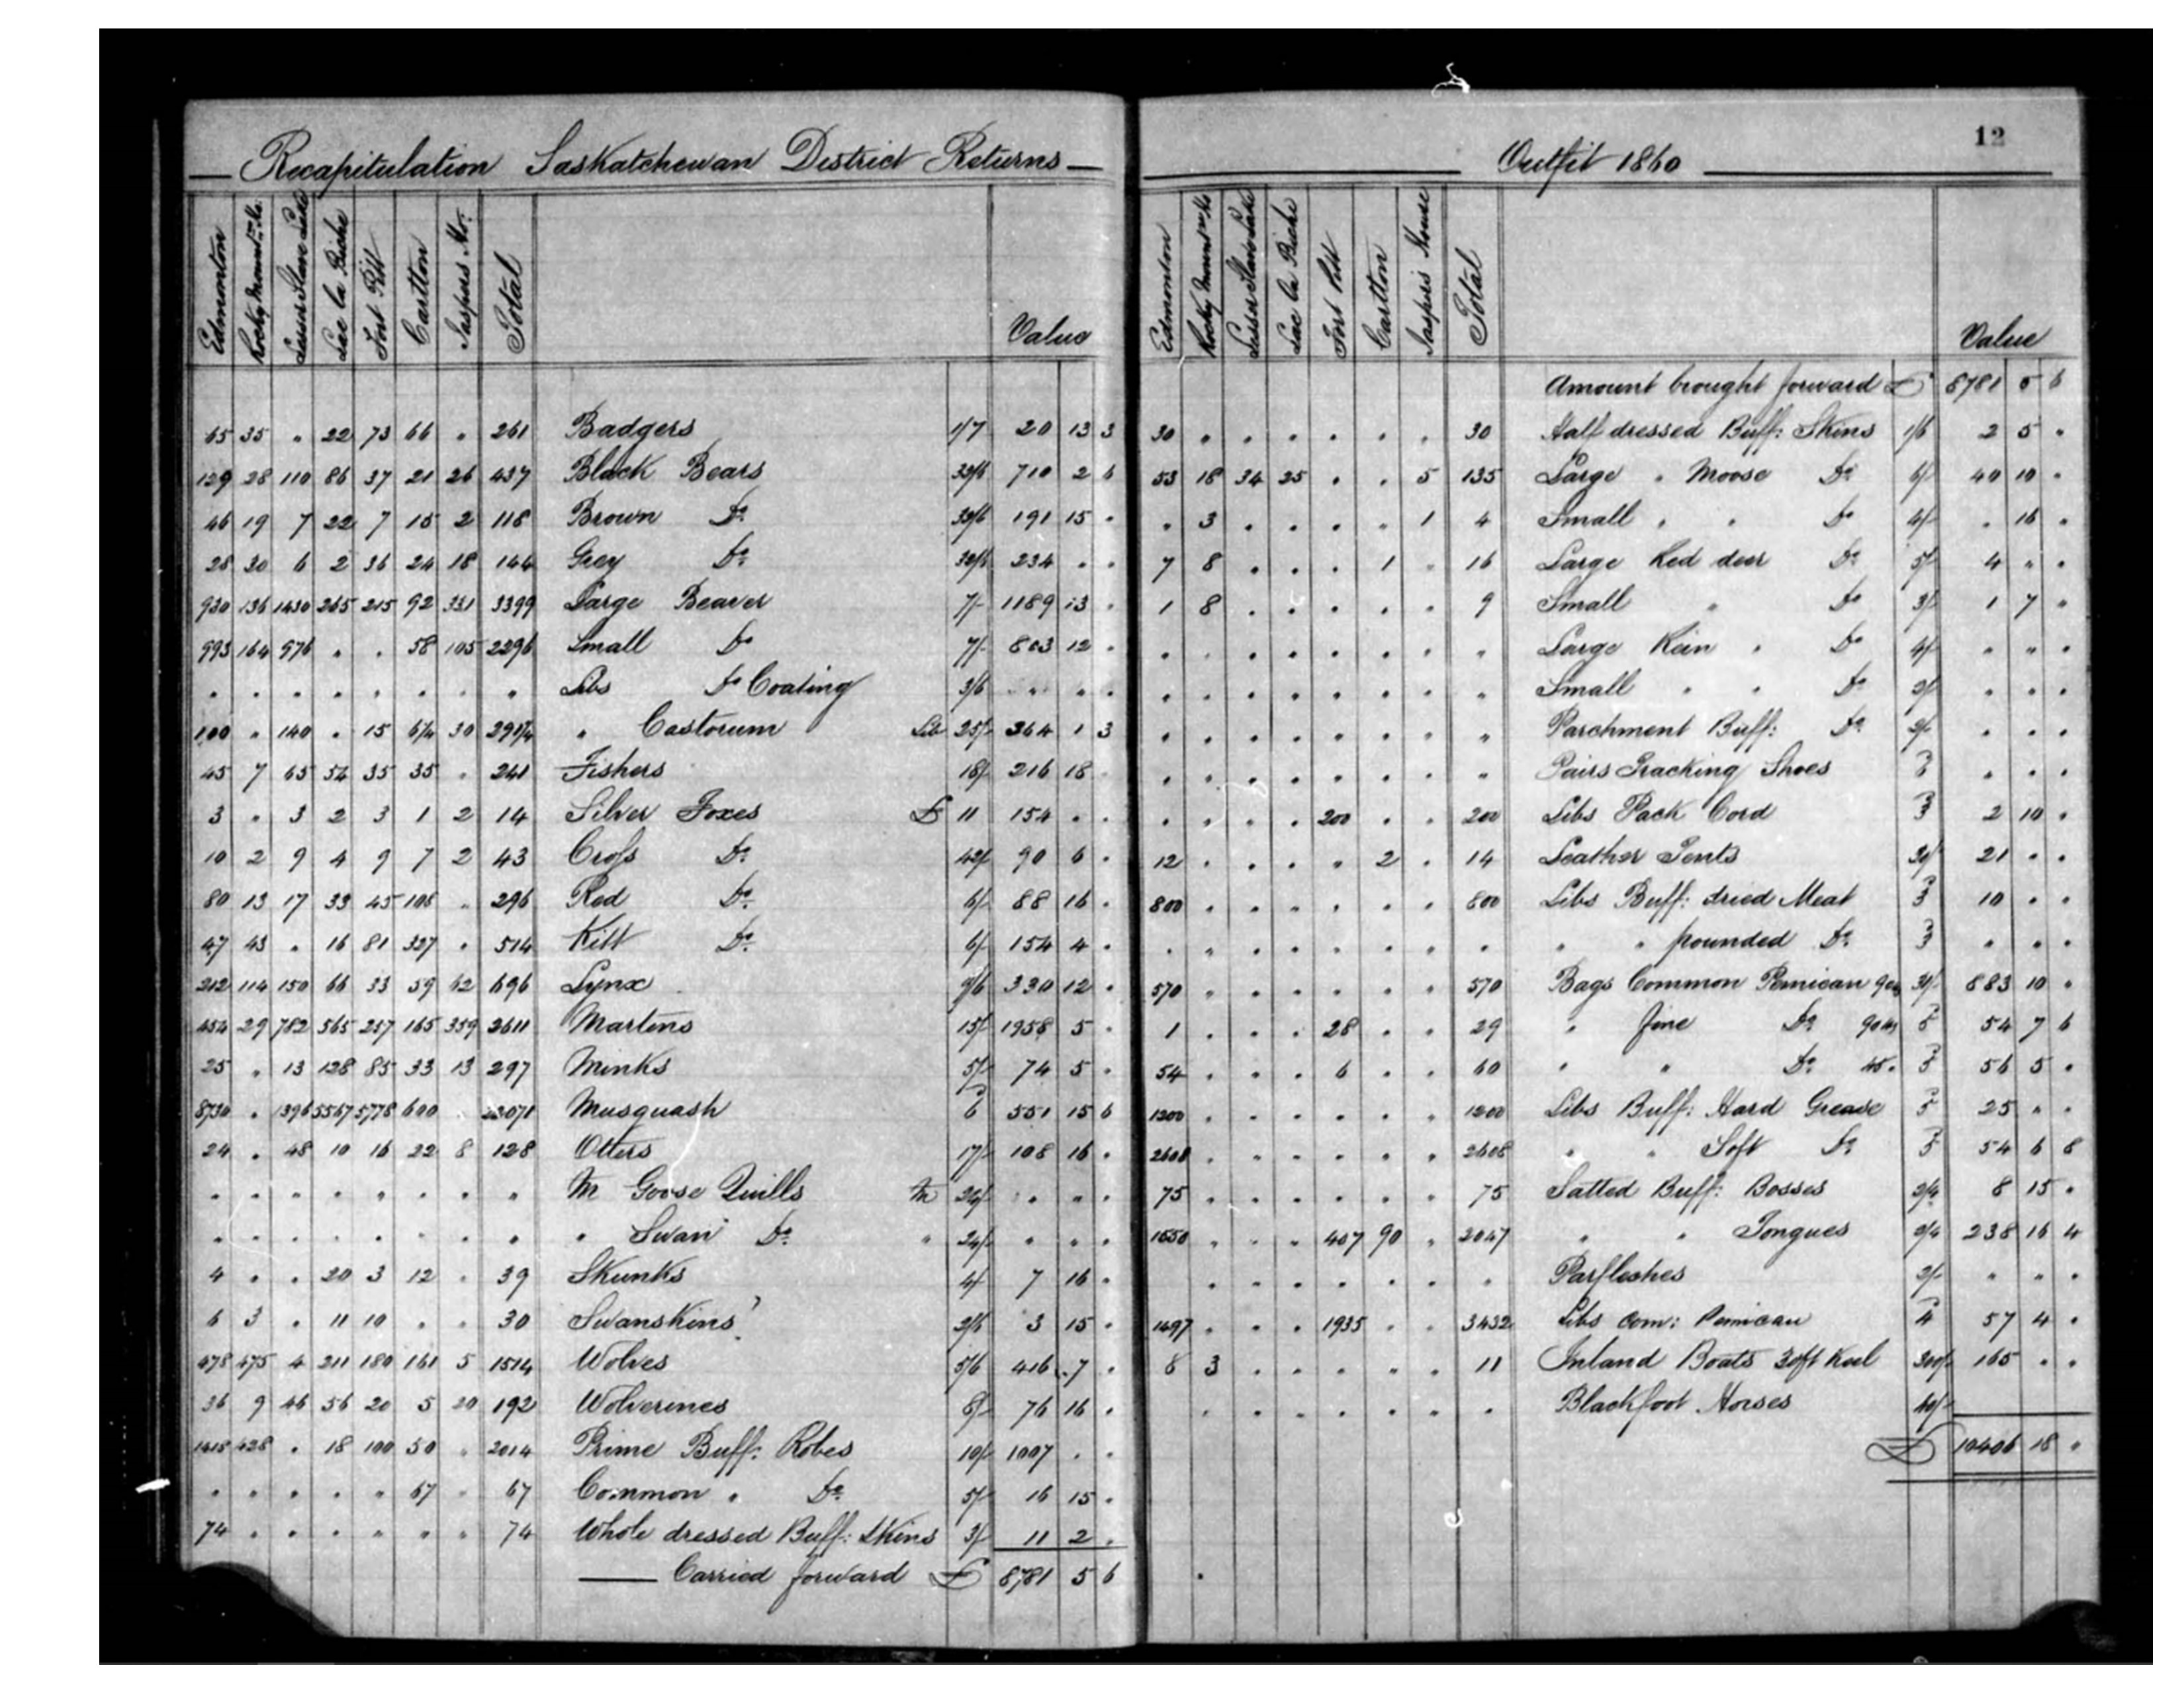 Recapitulation Saskatchewan District Returns
Edmonton Rocky Mount.n Ho. Lesser Slave Lake Lac la Biche Fort Pitt Carlton Jaspers Ho. Total Value
65 35 " 22 73 66 " 261 Badgers 1/7 20 13 3
129 28 110 86 37 21 26 437 Black Bears 32/6 710 2 6
46 19 7 22 7 15 2 118 Brown Do 32/6 191 15 "
28 30 6 2 36 24 18 144 Grey Do 32/6 234 " "
930 136 1430 265 215 92 331 3399 Large Beaver 7/- 1189 13 "
993 164 976 " " 58 105 2296 Small Do 7/- 803 12 "
" " " " " " " " Lbs Do Coating 3/6 " " "
100 " 140 " 15 6¼ 30 291¼ " Castorum Lb 25/- 364 1 3
45 7 65 54 35 35 " 241 Fishers 18/- 216 18 "
3 " 3 2 3 1 2 14 Silver Foxes £ 11 154 " "
10 2 9 4 9 7 2 43 Cross Do 42/- 90 6 "
80 13 17 33 45 108 " 296 Red Do 6/- 88 16 "
47 43 " 16 81 327 " 514 Kitt Do 6/- 154 4 "
212 114 150 66 33 59 62 696 Lynx 9/6 330 12 "
454 29 782 565 257 165 359 2611 Martens 15/- 1958 5 "
25 " 13 128 85 33 13 297 Minks 5/- 74 5 "
8730 " 1396 5567 5778 600 " 22071 Musquash 6 551 15 6
24 " 48 10 16 22 8 128 Otters 17/- 108 16 "
" " " " " " " " M Goose Quills M 24/- " " "
" " " " " " " " " Swan Do " 24/- " " "
4 " " 20 3 12 " 39 Skunks 4/- 7 16 "
6 3 " 11 10 " " 30 Swanskins 2/6 3 15 "
478 475 4 211 180 161 5 1514 Wolves 5/6 416 7 "
36 9 46 56 20 5 20 192 Wolverines 8/- 76 16 "
1418 428 " 18 100 50 " 2014 Prime Buff: Robes 10/- 1007 " "
" " " " " 67 " 67 Common " Do 5/- 16 15 "
74 " " " " " " 74 Whole dressed Buff: Skins 3/- 11 2 "
Carried forward £ 8781 5 6
12
Outfit 1860
Edmonton Rocky Mount.n Ho Lesser Slave Lake Lac la Biche Fort Pitt Carlton Jaspers House Total Value
Amount brought forward £ 8781 5 6
30 " " " " " " 30 Half dressed Buff: Skins 1/6 2 5 "
53 18 34 25 " " 5 135 Large " Moose Do 6/- 40 10 "
" 3 " " " " 1 4 Small " " Do 4/- " 16 "
7 8 " " " 1 " 16 Large Red deer Do 5/- 4 " "
1 8 " " " " " 9 Small " Do 3/- 1 7 "
" " " " " " " " Large Rein " Do 4/- " " "
" " " " " " " " Small " " Do 3/- " " "
" " " " " " " " Parchment Buff: Do 2/- " " "
" " " " " " " " Pairs Tracking Shoes 6 " " "
" " " " 200 " " 200 Lbs Pack Cord 3 2 10 "
12 " " " " 2 " 14 Leather Tents 30/- 21 " "
800 " " " " " " 800 Lbs Buff: dried Meat 3 10 " "
" " " " " " " " " " pounded Do 3 " " "
570 " " " " " " 570 Bags Common Pemican 90 lbs 31/- 883 10 "
1 " " " 28 " " 29 " fine Do 90 lbs 5 54 7 6
54 " " " 6 " " 60 " " Do 45 " 5 56 5 "
1200 " " " " " " 1200 Lbs Buff: Hard Grease 5 25 " "
2608 " " " " " " 2608 " " Soft Do 5 54 6 8
75 " " " " " " 75 Salted Buff: Bosses 2/4 8 15 "
1550 " " " 407 90 " 2047 " " Tongues 2/4 238 16 4
" " " " " " " " Parfleches 2/- " " "
1497 " " " 1935 " " 3432 Lbs Com: Pemican 4 57 4 "
8 3 " " " " " 11 Inland Boats 30ft Keel 300/- 165 " "
" " " " " " " " Blackfoot Horses 40/-
£ 10406 18 "